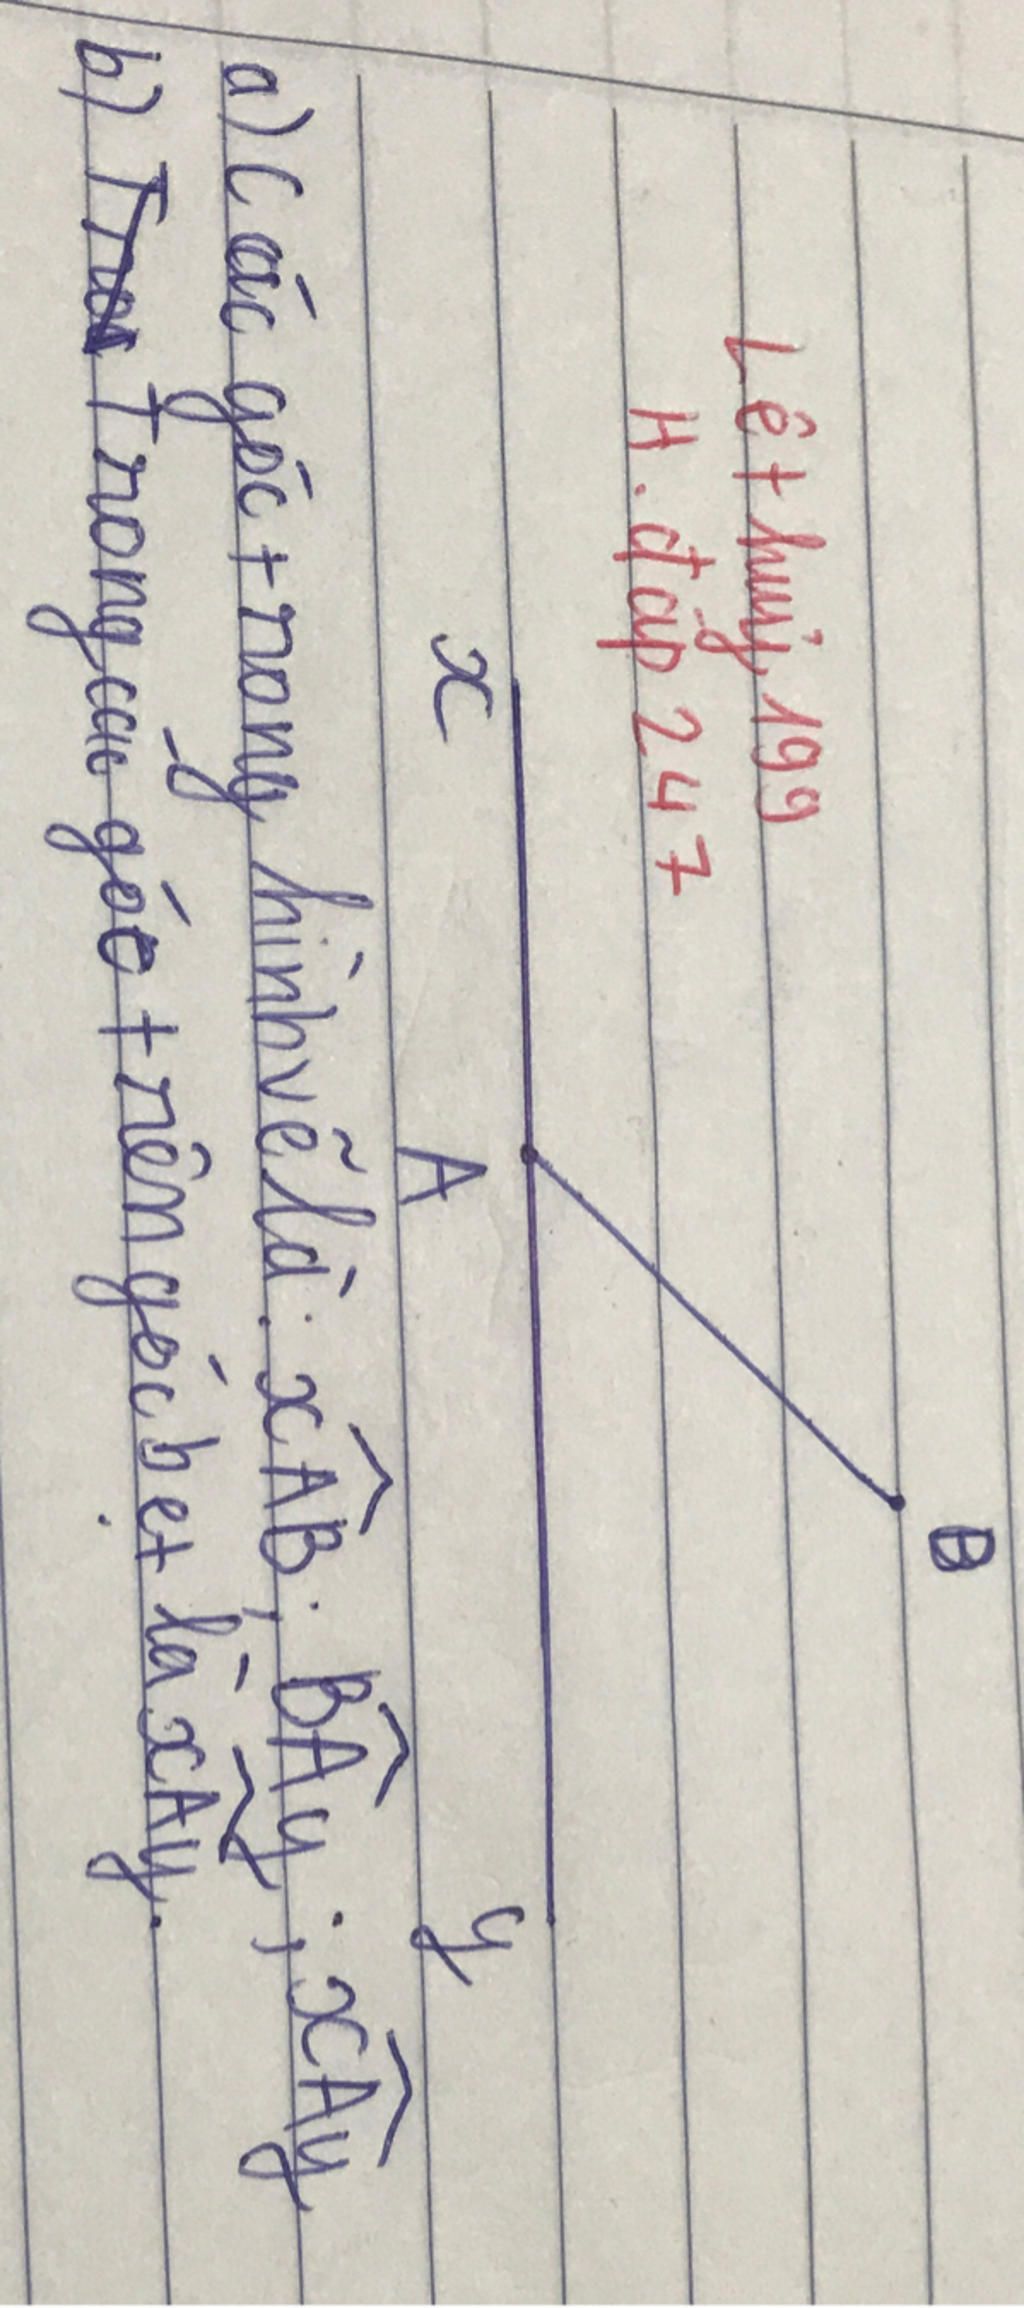 Lệ thuỷ 199
H. đáp 247
B
x A y
a) Các góc trong hình vẽ là: xAB; BAy; xAy
b) Trong các góc trên góc bẹt là xAy.